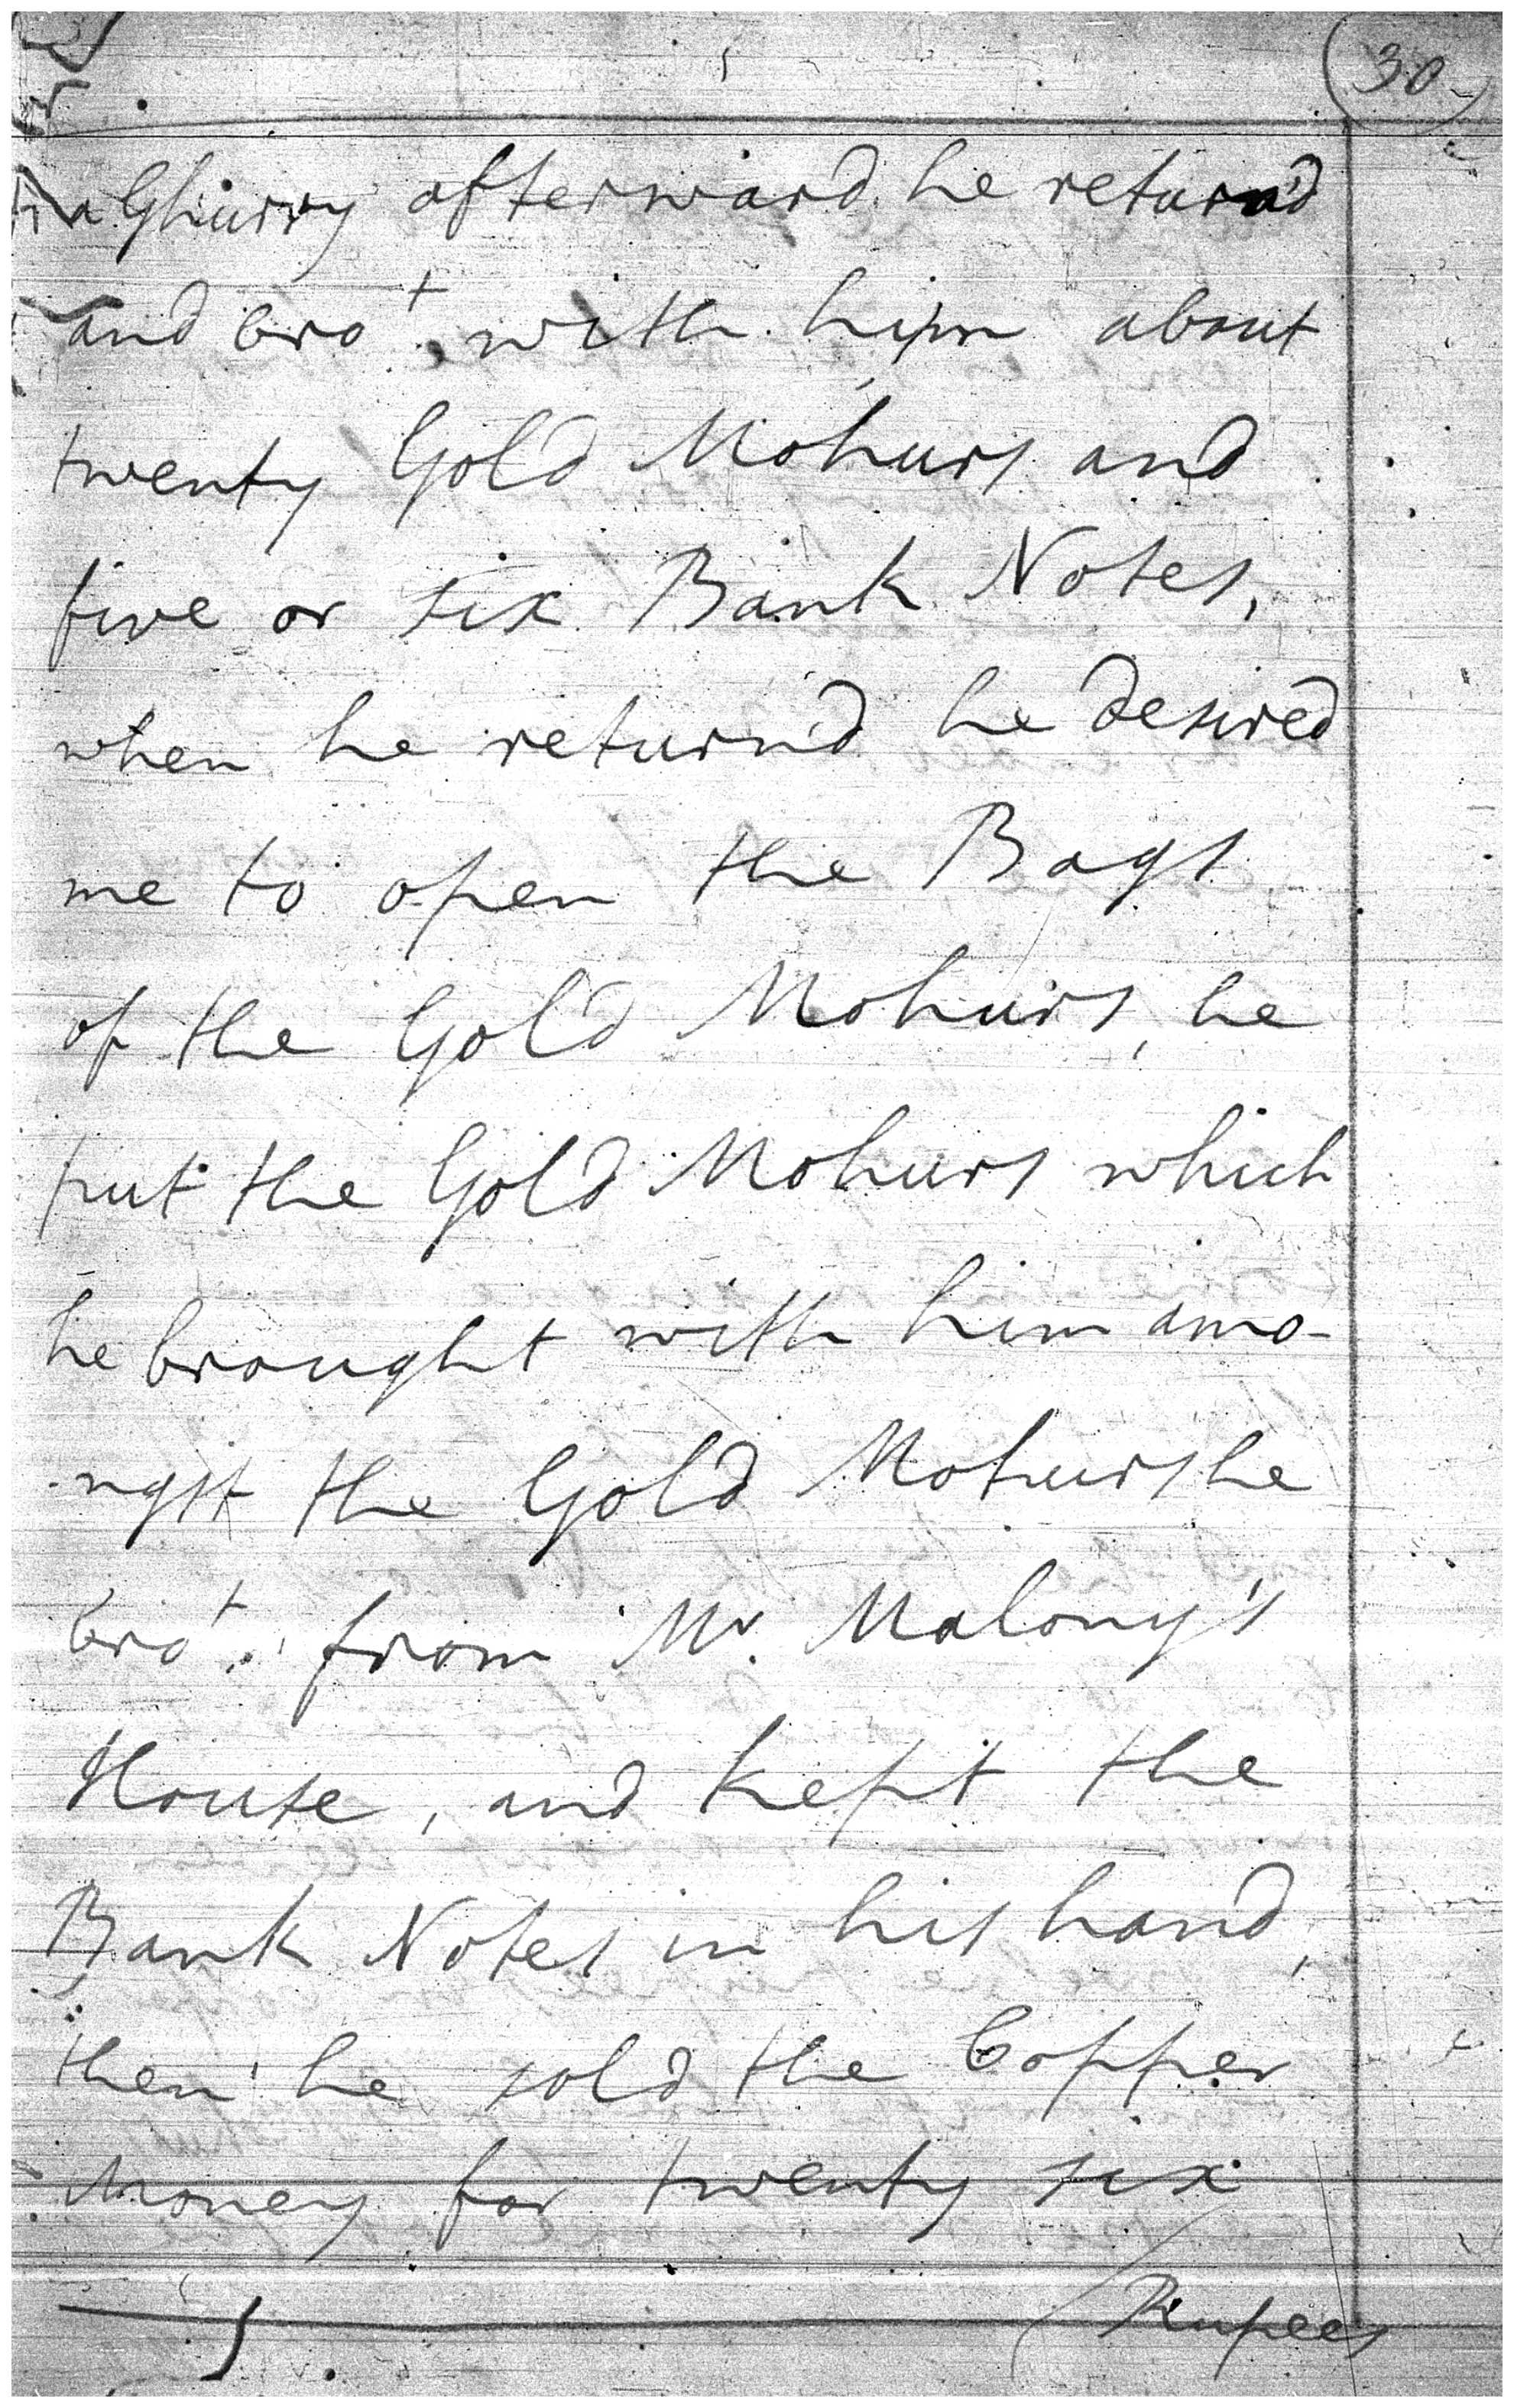 (30)
a Ghurry afterward he return'd
and bro.t with him about
twenty Gold Mohurs and
five or six Bank Notes,
when he return'd he desired
me to open the Bags
of the Gold Mohurs, he
put the Gold Mohurs which
he brought with him amo-
-ngst the Gold Mohurs he
bro.t from Mr. Malony's
House, and kept the
Bank Notes in his hand,
then he sold the Copper
Money for twenty six
Rupees